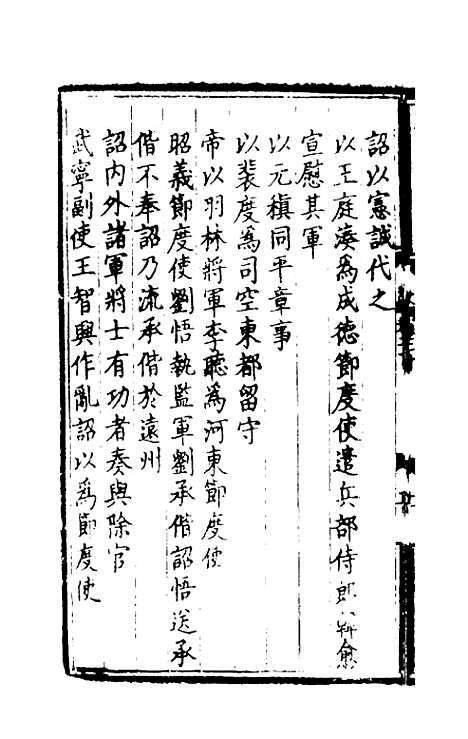 詔以憲誠代之
以王庭湊為成德節度使遣兵部侍郎韓愈
宣慰其軍
以元稹同平章事
以裴度為司空東都留守
帝以羽林將軍李聽為河東節度使
昭義節度使劉悟執監軍劉承偕詔悟送承
偕不奉詔乃流承偕於遠州
詔內外諸軍將士有功者奏與除官
武寧副使王智興作亂詔以為節度使